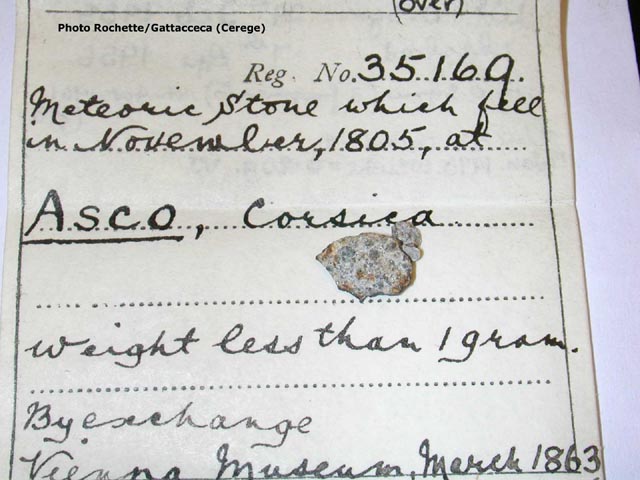 (over)
Photo Rochette/Gattacceca (Cerege)
Reg. No. 35169.
Meteoric Stone which fell
in November, 1805, at
Asco, Corsica
weight less than 1 gram.
By exchange
Vienna Museum, March 1863